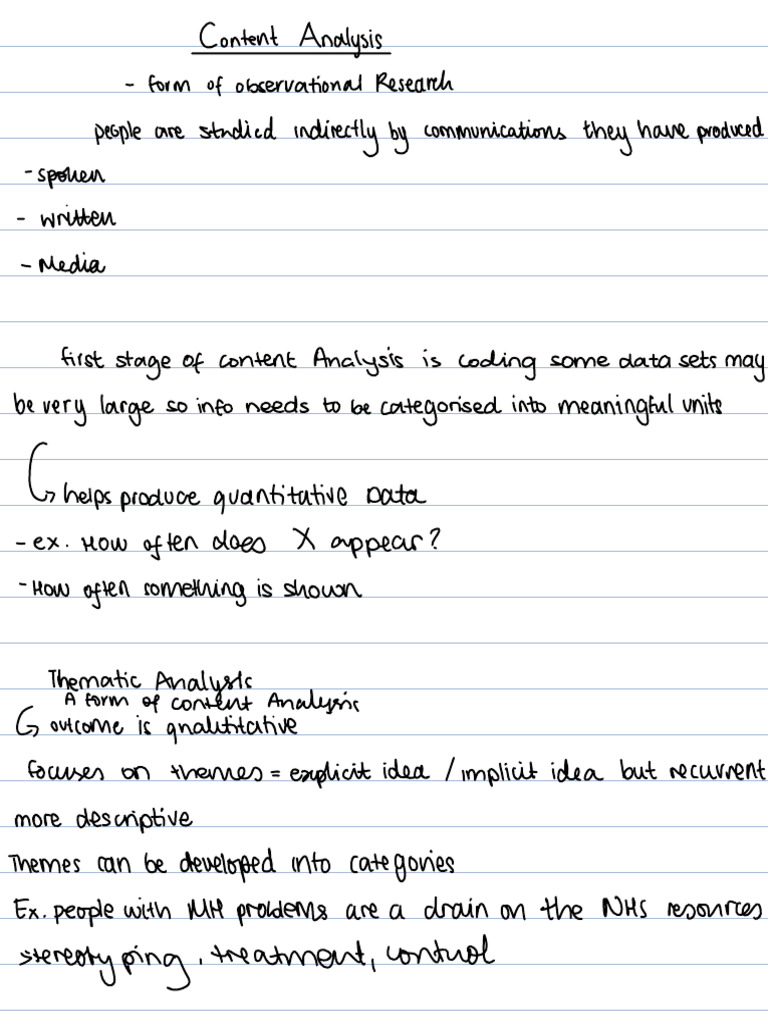 Content Analysis
- form of observational Research
people are studied indirectly by communications they have produced
- spoken
- written
- Media
first stage of content Analysis is coding some data sets may
be very large so info needs to be categorised into meaningful units
↳ helps produce quantitative Data
- ex. How often does X appear?
- How often something is shown
Thematic Analysis
A form of content Analysis
↳ outcome is qnalititative
focuses on themes = explicit idea / implicit idea but recurrent
more descriptive
Themes can be developed into categories
Ex. people with MH problems are a drain on the NHS resources
stereotyping, treatment, control